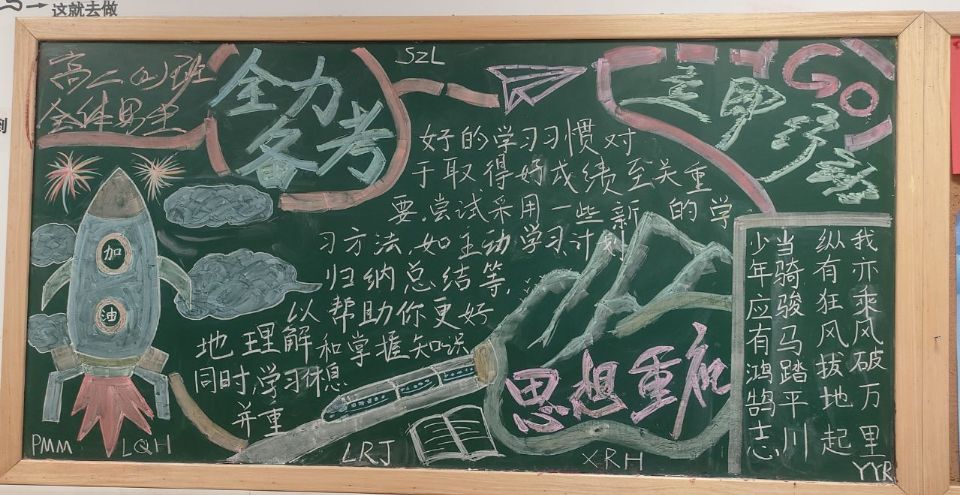 这就去做
高二
班
全体男生
全力
备考
SZL
GO
加
油
好的学习习惯对
于取得好成绩至关重
要.尝试采用一些新的学
习方法,如主动学习.计划
归纳总结等,
以帮助你更好
地理解和掌握知识
同时,学习休息
并重
思想重
少年应有鸿鹄志
当骑骏马踏平川
纵有狂风拔地起
我亦乘风破万里
PMM
LQH
LRJ
XRH
YYR